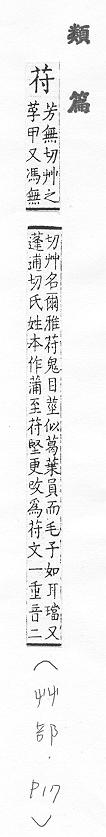 類篇
苻
芳無切艸之
莩甲又馮無
切艸名爾雅苻鬼目莖似葛葉員而毛子如耳璫又
蓬逋切氏姓本作蒲至苻堅更改爲苻文一重音二
(艸部.P17)